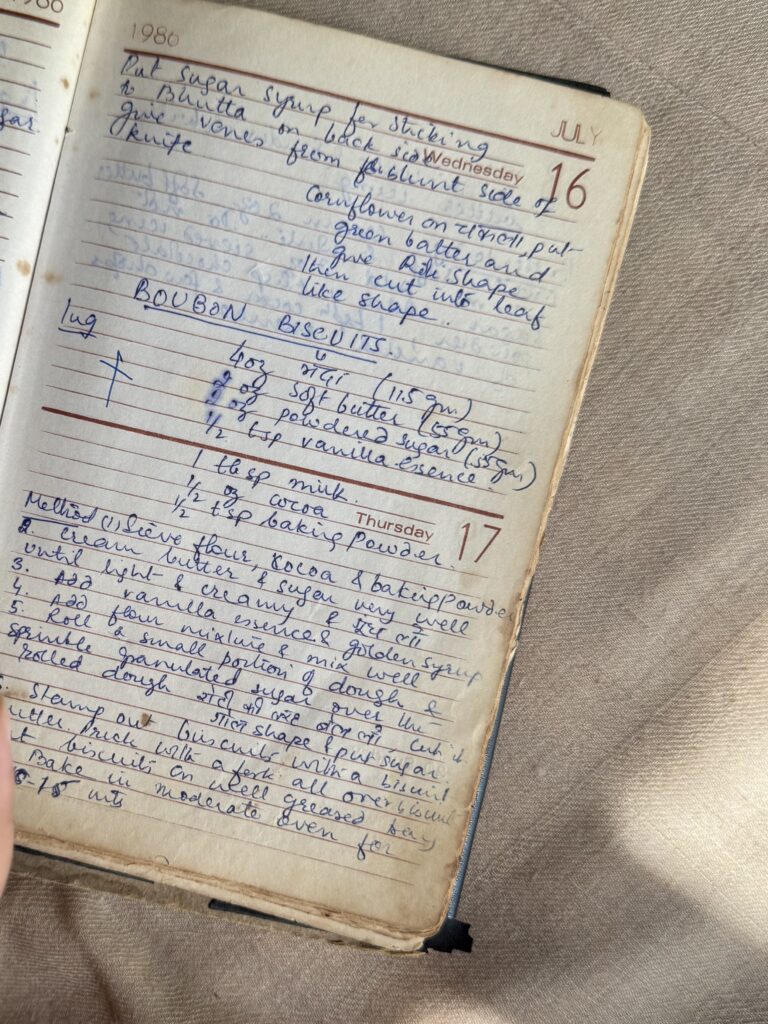 1986
JULY
Put sugar syrup for sticking
to Bhutta on back side
Wednesday 16
give venes from blunt side of
knife
Cornflower on चकला, put
green batter and
give Roti shape
then cut into leaf
like shape.
BOUBON BISCUITS.
Ing
4 oz मैदा (115 gm)
2 oz soft butter (55 gm)
2 oz powdered sugar (55 gm)
1/2 tsp vanilla essence.
1 tbsp milk.
1/2 oz cocoa
1/2 tsp baking powder.
Thursday 17
Method (1) Sieve flour, cocoa & baking powder
2. cream butter & sugar very well
until light & creamy
3. Add vanilla essence & golden syrup
4. Add flour mixture & mix well
5. Roll a small portion of dough &
sprinkle granulated sugar over the
rolled dough रोटी की तरह बेल लो, cut it
shape & put sugar
6. Stamp out biscuits with a biscuit
cutter prick with a fork all over biscuit
biscuits on well greased tray
Bake in moderate oven for
mts